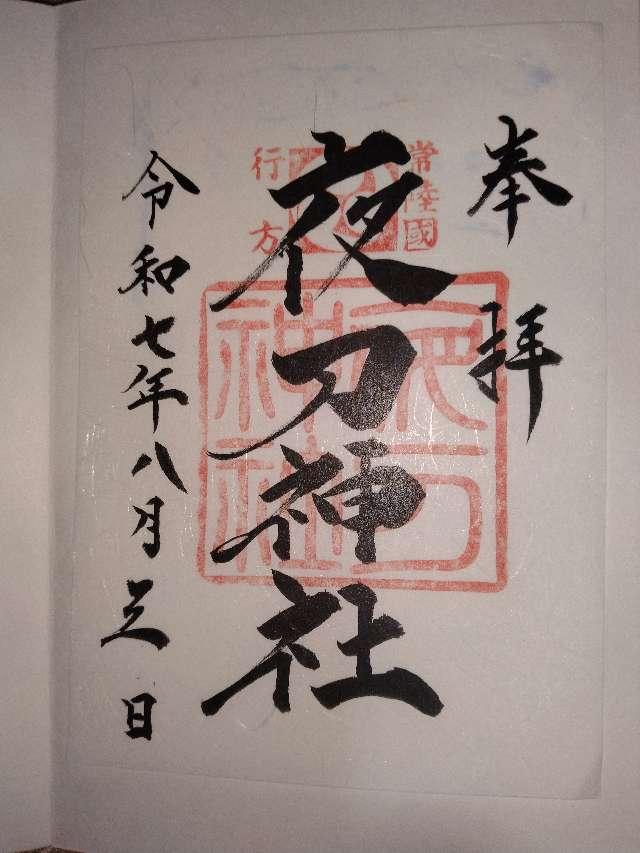 奉拝
常陸國
行方
夜刀神社
夜刀神社
令和七年八月 日